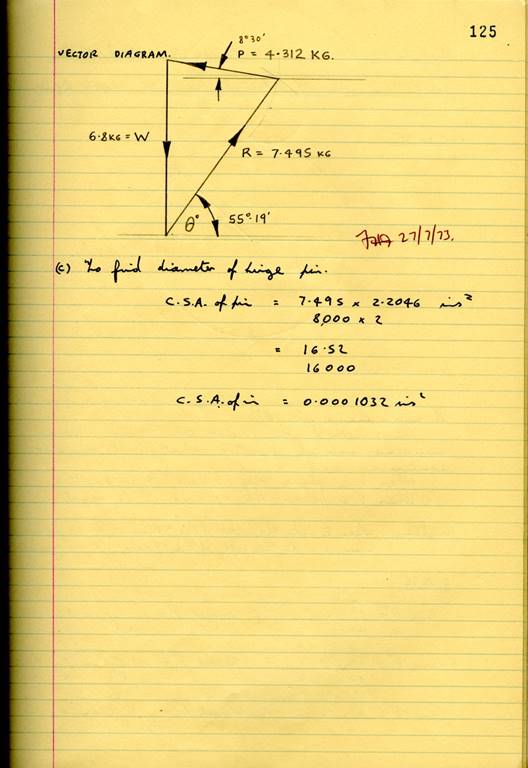 125
VECTOR DIAGRAM.
8°30'
P = 4.312 KG.
6.8KG = W
R = 7.495 KG
θ° 55°.19'
27/7/73.
(c) To find diameter of hinge pin.
C.S.A. of pin = 7.495 x 2.2046 ins²
8,000 x 2
= 16.52
16000
C.S.A. of pin = 0.0001032 ins²